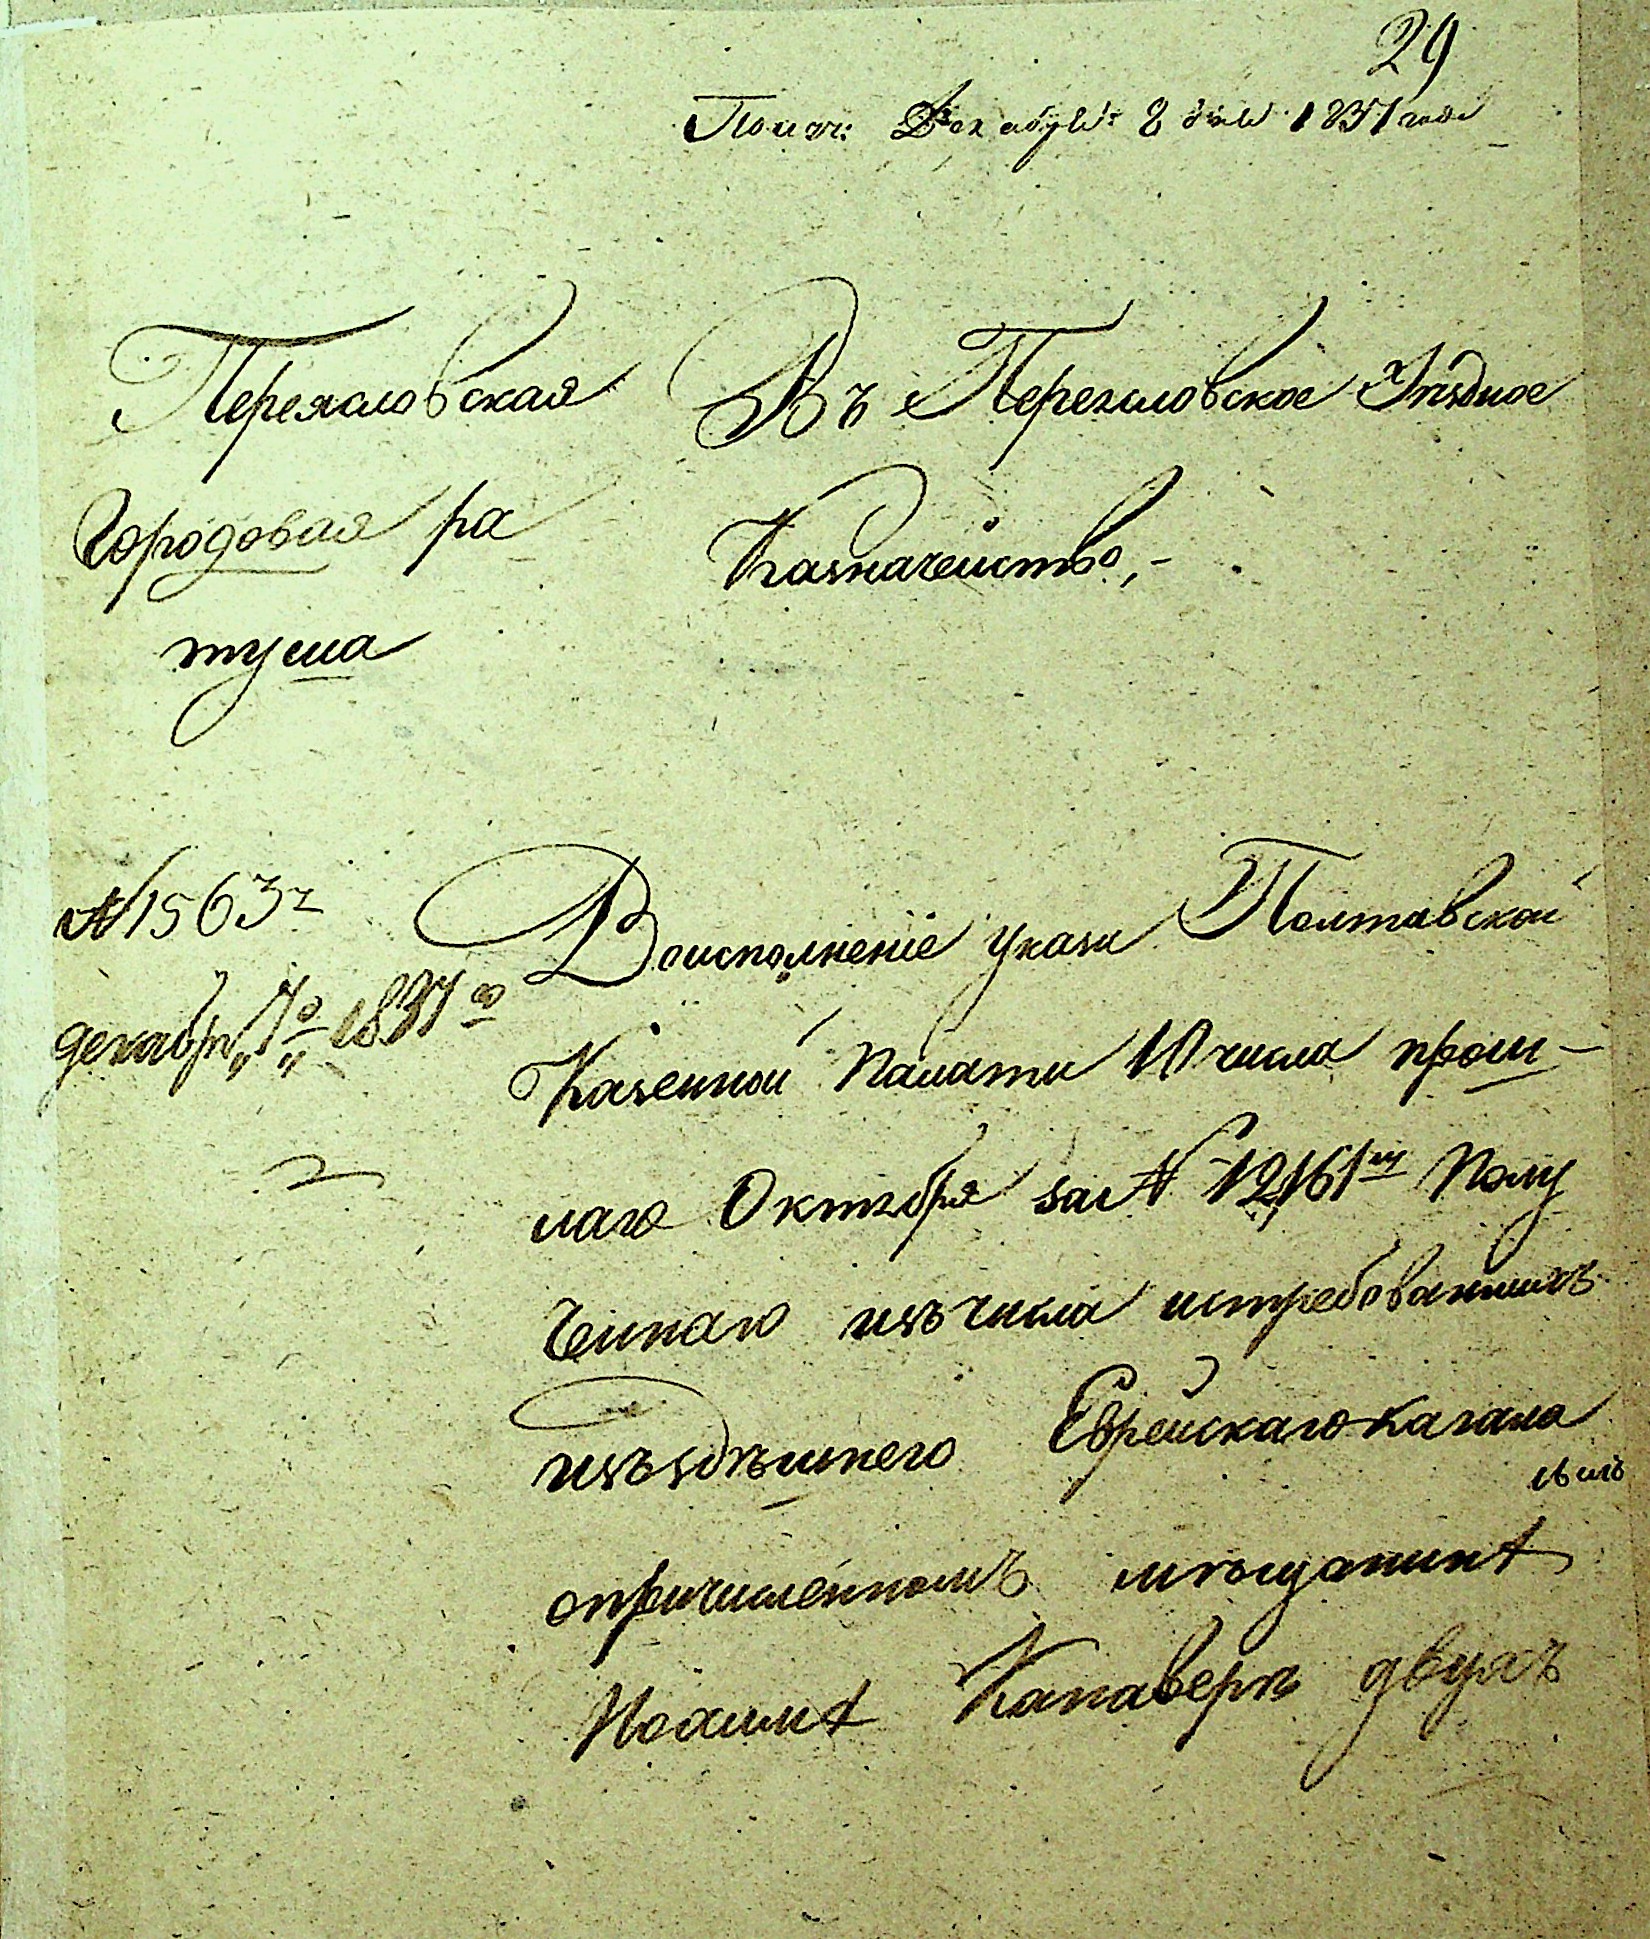 29
Получ: Декабря 8 дня 1837 года
Переясловская
Городовая ра
туша
Въ Переясловское Уѣздное
Казначейство,-
№ 1563
декабр. „7го„ 1837го
Воисполненіе указа Полтавской
Казенной Палаты 10 числа прош-
лаго Октября за № 12,161м Полу
ченаго изъ числа истребованныхъ
изъ здѣшнего Еврейскаго Кагала
опричисленномъ мѣщанинѣ
Капаверѣ двухъ